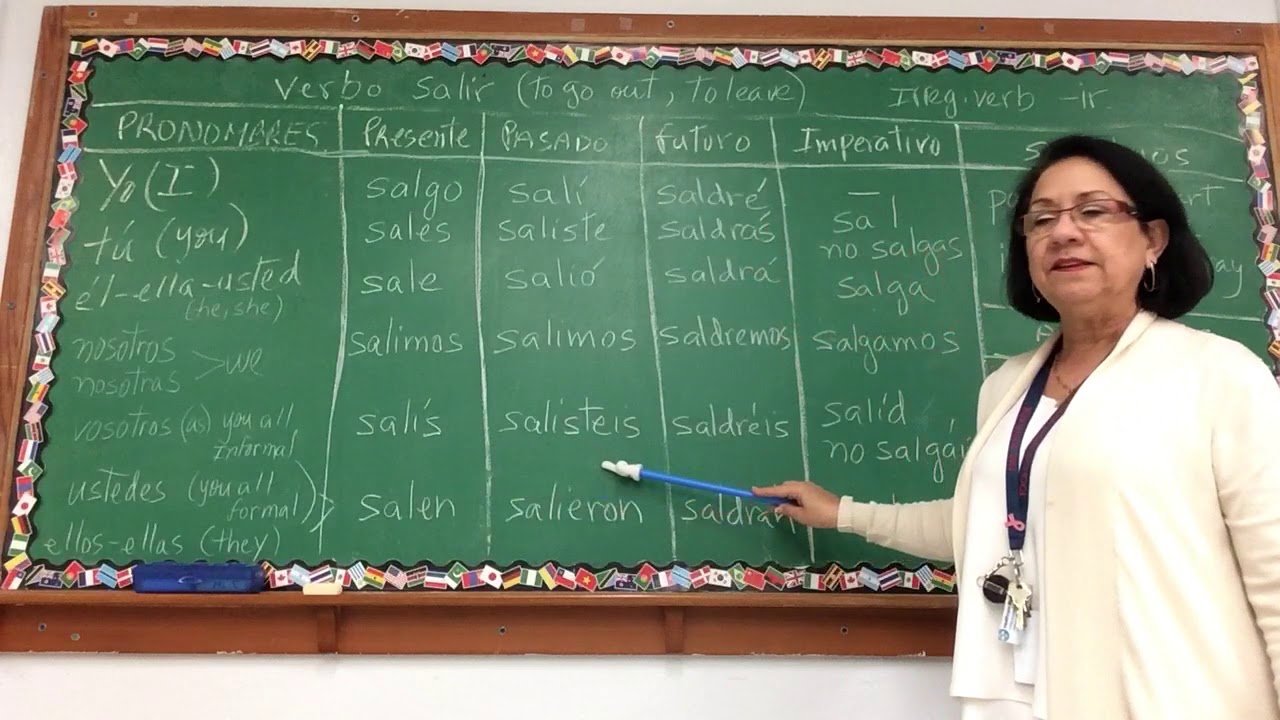 Verbo Salir (to go out, To leave) Irreg. verb -ir.
PRONOMBRES Presente PASADO futuro Imperativo
Yo (I) salgo salí saldré —
tú (you) sales saliste saldrás sal
no salgas
él-ella-usted sale salió saldrá salga
(he, she)
nosotros
nosotras >we salimos salimos saldremos salgamos
vosotros (as) you all salís salisteis saldréis salíd
Informal no
ustedes (you all salen salieron
formal)
ellos-ellas (they)